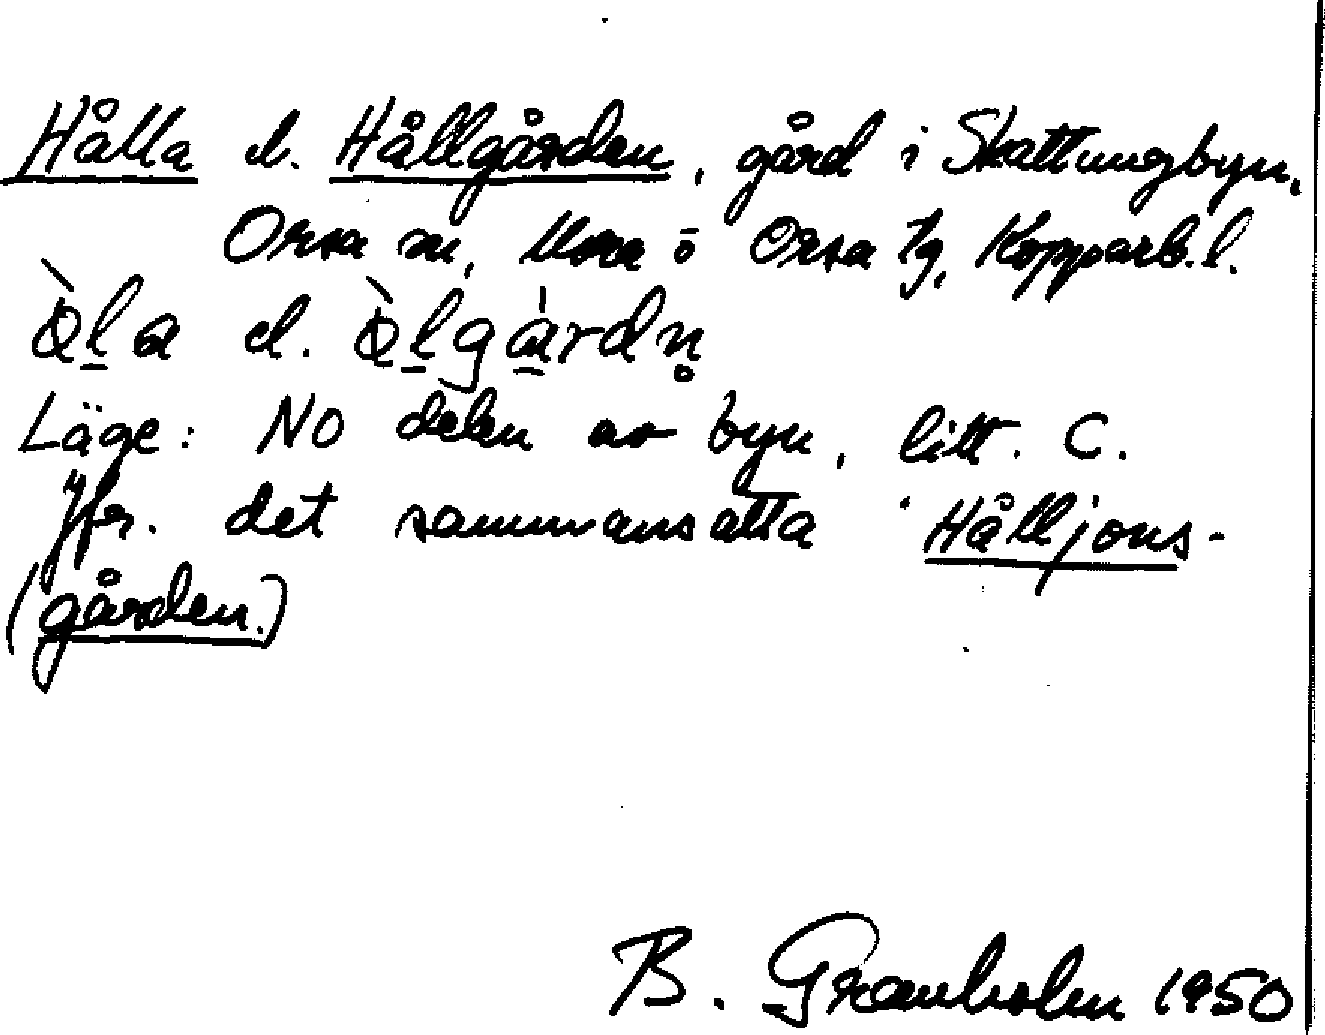 Hålla el. Hållgården, gård i Skattungbyn,
Orsa sn, Mora o Orsa tg, Kopparb. l.
Läge: NO delen av byn, litt. C.
Jfr. det sammansatta Hålljons-
(gården.)
B. Granholm 1950